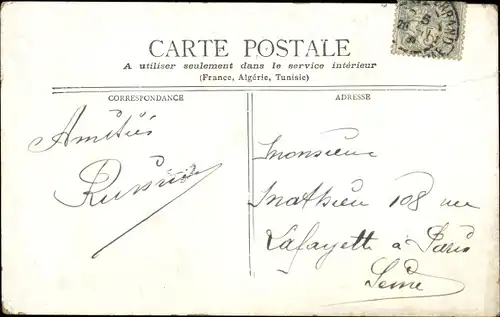 CARTE POSTALE
A utiliser seulement dans le service intérieur
(France, Algérie, Tunisie)
CORRESPONDANCE
Amitiés
ADRESSE
Monsieur
Mathieu 108 rue
Lafayette à Paris
Seine